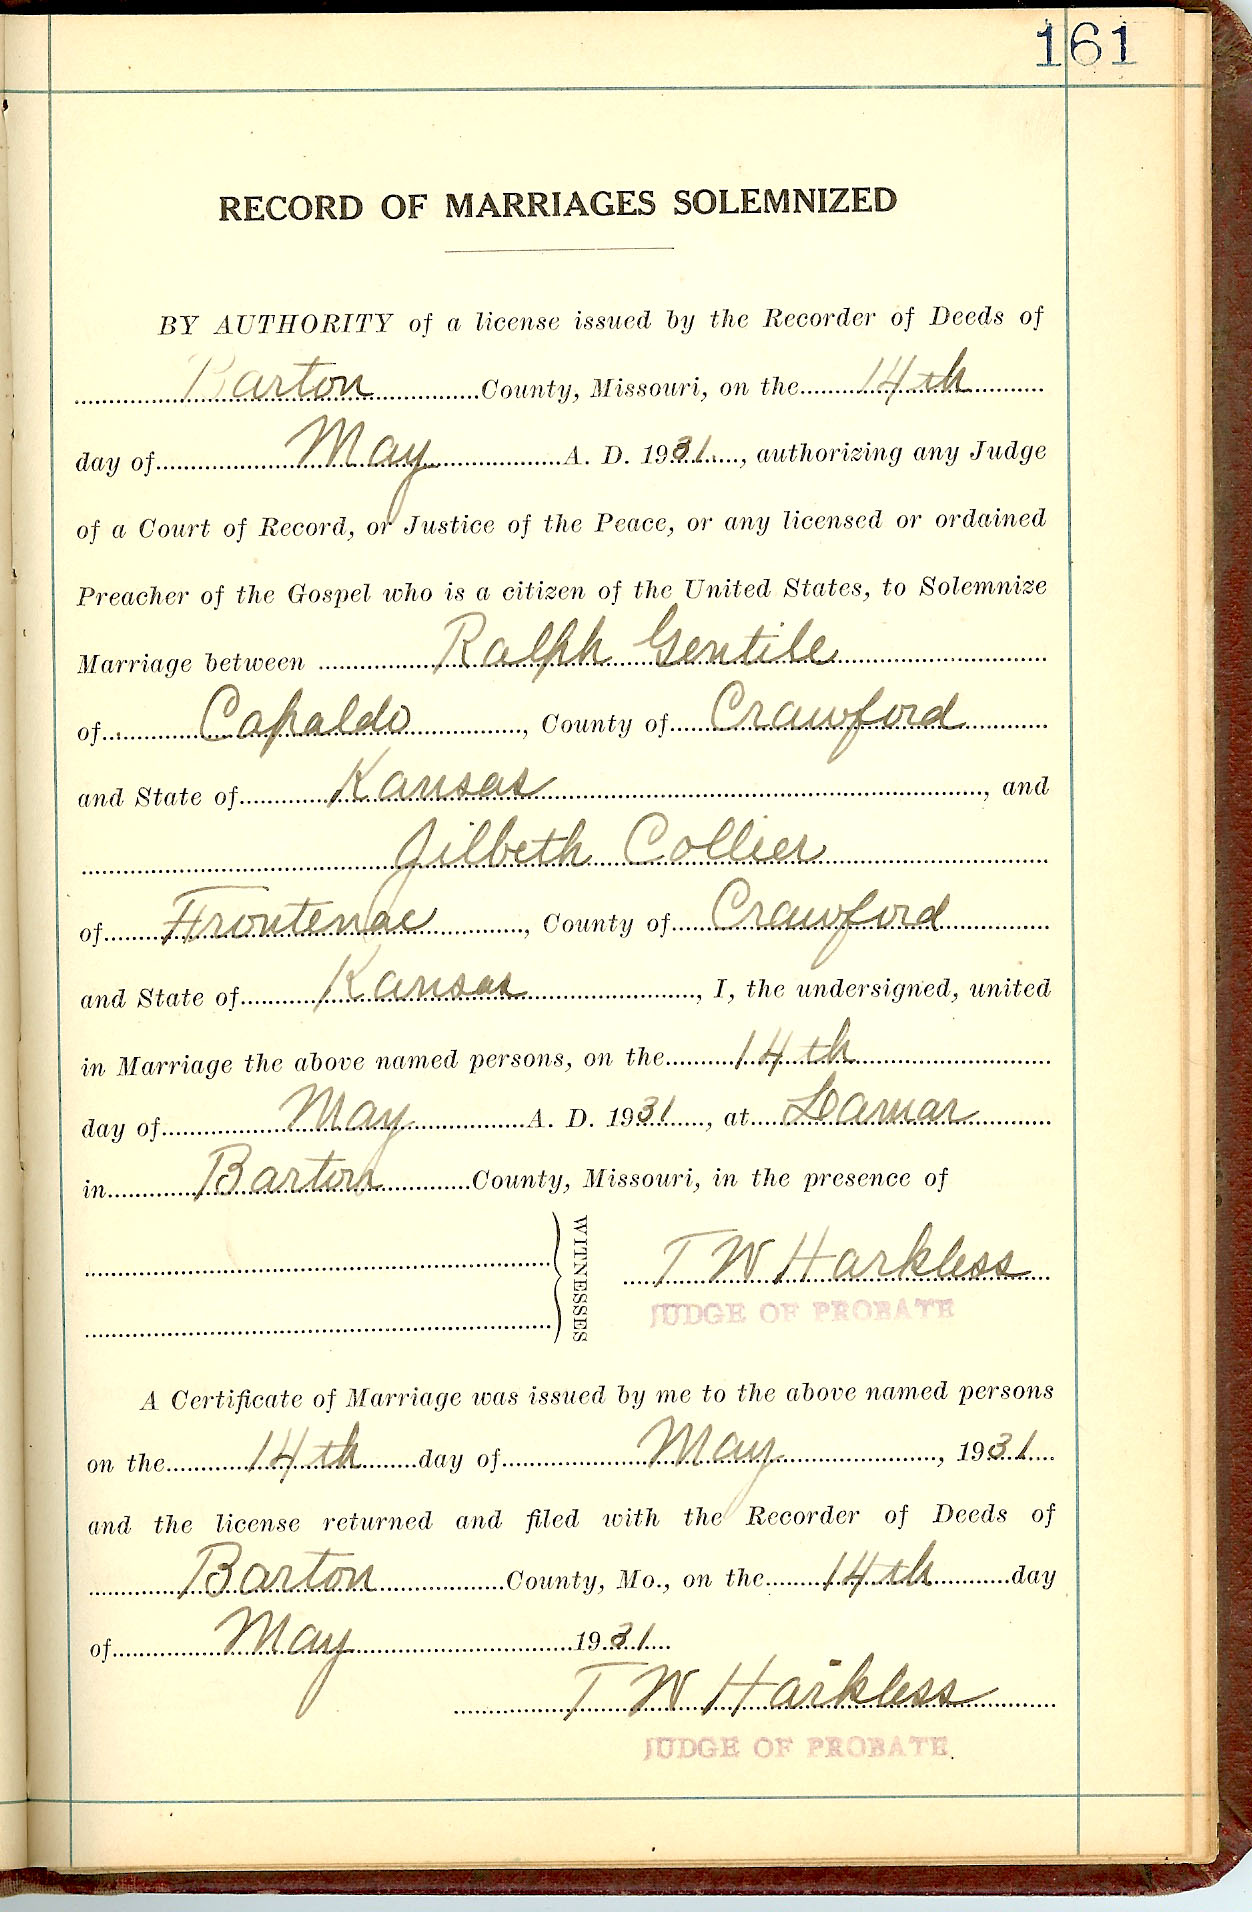 161
RECORD OF MARRIAGES SOLEMNIZED
BY AUTHORITY of a license issued by the Recorder of Deeds of
Barton County, Missouri, on the 14th
day of May A. D. 1931, authorizing any Judge
of a Court of Record, or Justice of the Peace, or any licensed or ordained
Preacher of the Gospel who is a citizen of the United States, to Solemnize
Marriage between Ralph Gentile
of Capaldo, County of Crawford
and State of Kansas, and
Jilbeth Collier
of Frontenac, County of Crawford
and State of Kansas, I, the undersigned, united
in Marriage the above named persons, on the 14th
day of May A. D. 1931, at Lamar
in Barton County, Missouri, in the presence of
WITNESSES
T W Harkless
JUDGE OF PROBATE
A Certificate of Marriage was issued by me to the above named persons
on the 14th day of May, 1931
and the license returned and filed with the Recorder of Deeds of
Barton County, Mo., on the 14th day
of May 1931
T W Harkless
JUDGE OF PROBATE.